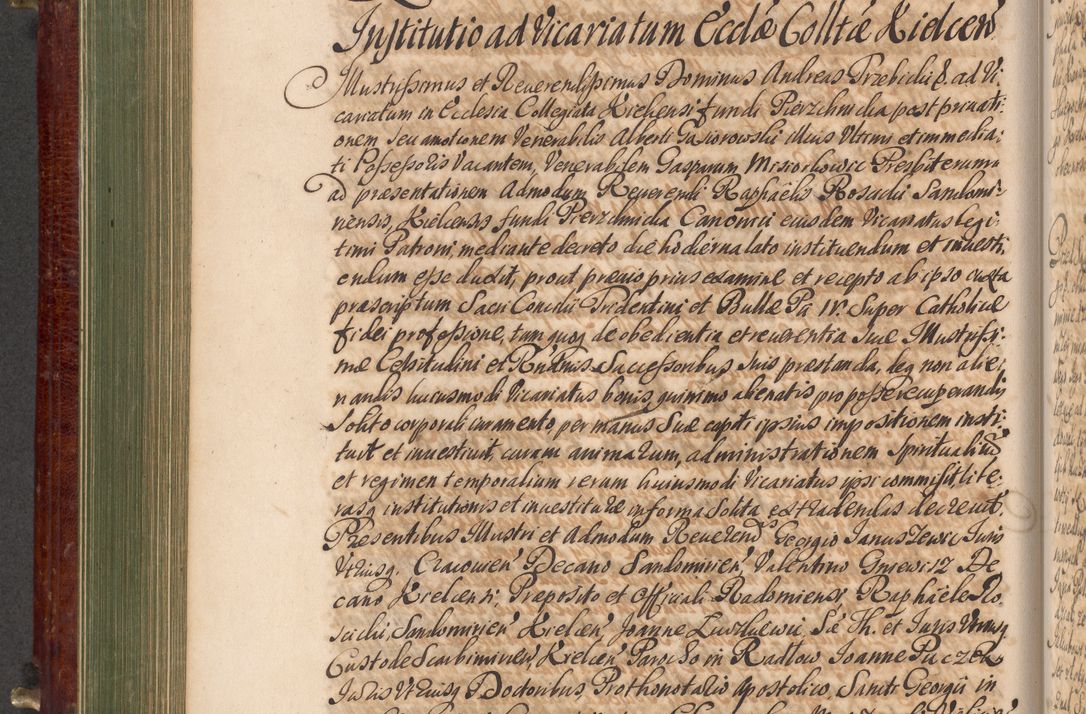 Institutio ad Vicariatum Eccłæ Colltæ Kielcen̄
Illustrissimus et Reverendissimus Dominus Andreas Trzebicki &c ad Vi:
cariatum in Ecclesia Collegiata Kielcensi fundi Pierzchnicka post privati:
onem seu amotionem Venerabilis Alberti Gąsiorowski illius Ultimi et immedia:
ti Possessoris Vacantem, Venerabilem Gasparum Misiorkowic Presbiterum
ad præsentationem Admodum Reverendi Raphaelis Rosachi Sandomi:
riensis, Kielcensis fundi Pierzchnicka Canonici eiusdem Vicariatus legi:
timi Patroni, mediante decreto die hodierna lato instituendum et investi:
endum esse duxit, prout prævio prius examine et recepto ab ipso iuxta
præscriptum Sacri Concilii Tridentini et Bullæ Pii IV. Super Catholicæ
fidei professione, tum quoq de obedientia et reverentia Suæ Illustrissi:
mæ Celsitudini et Rńdmis Successoribus suis præstanda, deq non alie:
nandis huiusmodi Vicariatus bonis, quinimo alienatis pro posse recuperandis
solito corporali iuramento per manus Suæ capiti ipsius impositionem insti:
tuit et investivit, curam animarum, administrationem Spiritualium
et regimen temporalium rerum huiusmodi Vicariatus ipsi commisit, lite:
rasq institutionis et investituræ in forma solita extradendas decrevit.
Præsentibus Illustri et Admodum Reverendis Georgio Januszewic Juris
Utriusq. Cracovien̄ Decano Sandomirien̄, Valentino Gniewisz De
cano Kielcensi, Præposito et Officiali Radomiensi Raphaele Ro
sachi, Sandomirien̄ Kielcen̄ Joanne Sæ Th. et Juris Utriusq
Custode Scarbimirien̄ Kielcen̄ Parocho in Radłow Joanne Puczek
Juris Utriusq Doctoribus, Prothonotario Apostolico, Sancti Georgii in